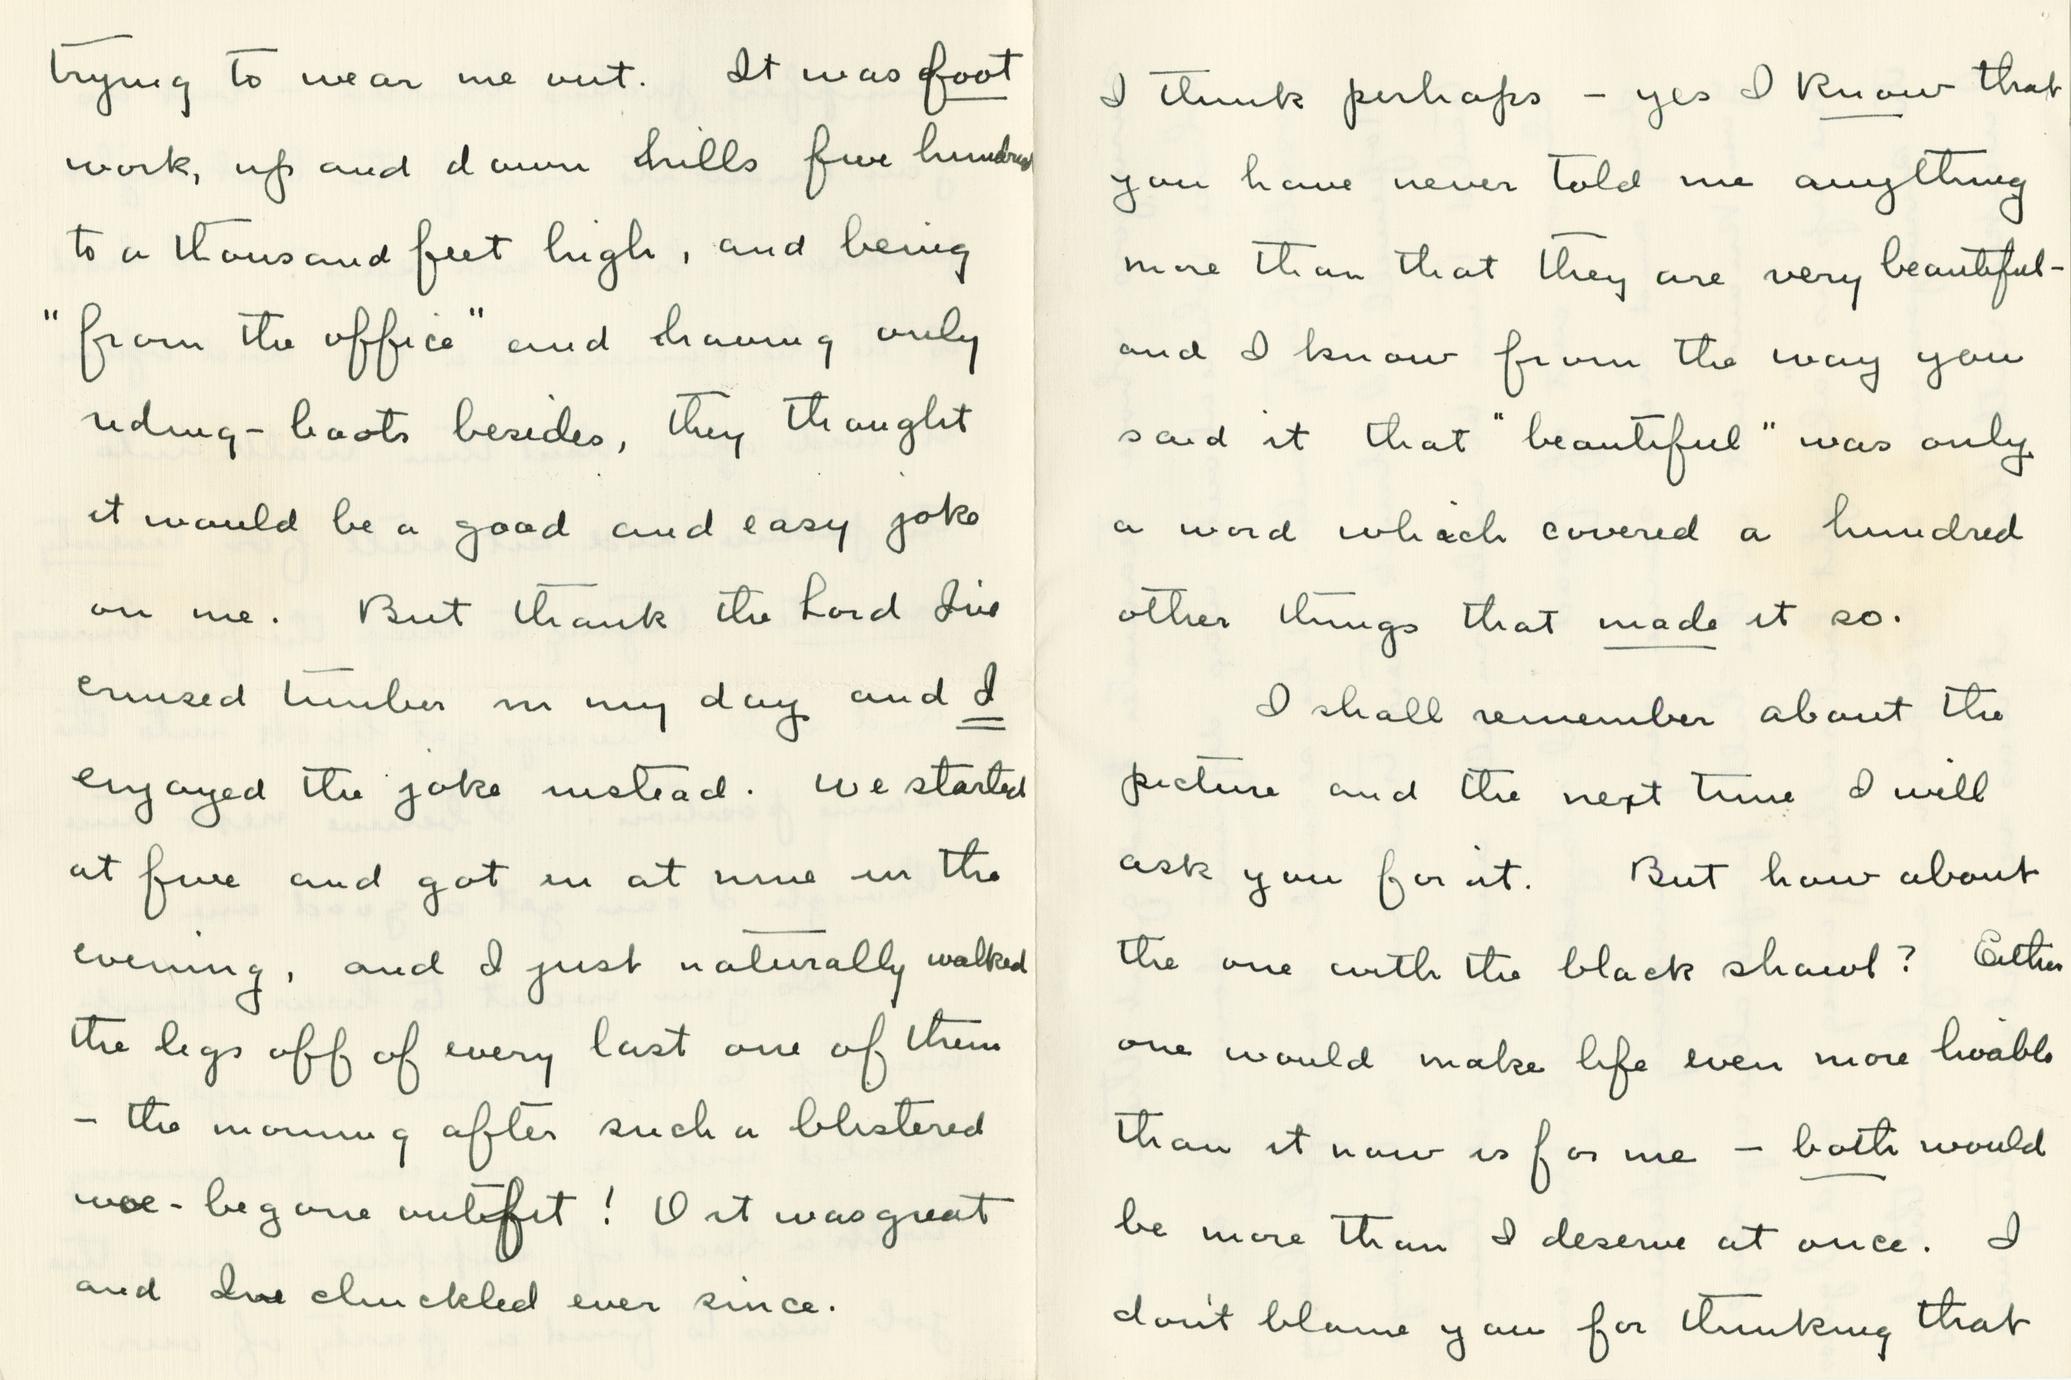 trying to wear me out. It was foot
work, up and down hills five hundred
to a thousand feet high, and being
"from the office" and having only
riding-boots besides, they thought
it would be a good and easy joke
on me. But thank the Lord I've
cruised timber in my day and I
enjoyed the joke instead. We started
at five and got in at nine in the
evening, and I just naturally walked
the legs off of every last one of them
- the morning after such a blistered
woe-begone outfit! O it was great
and I've chuckled ever since.
I think perhaps - yes I know that
you have never told me anything
more than that they are very beautiful-
and I know from the way you
said it that "beautiful" was only
a word which covered a hundred
other things that made it so.
I shall remember about the
picture and the next time I will
ask you for it. But how about
the one with the black shawl? Either
one would make life even more livable
than it now is for me - both would
be more than I deserve at once. I
don't blame you for thinking that